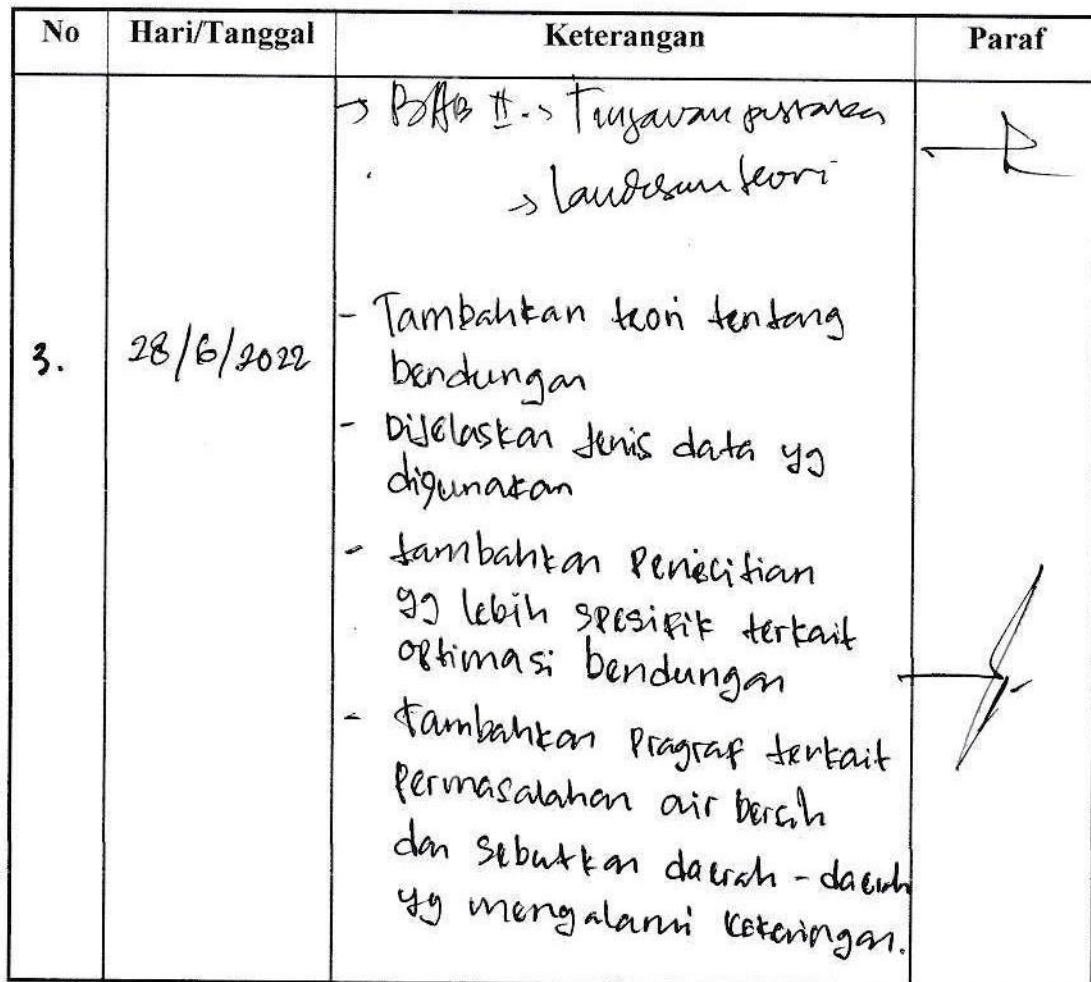 No Hari/Tanggal Keterangan Paraf
→ BAB II. → Tinjauan pustaka
→ Landasan teori
3. 28/6/2022
- Tambahkan teori tentang
bendungan
- Dijelaskan jenis data yg
digunakan
- tambahkan Penelitian
yg lebih spesifik terkait
optimasi bendungan
- tambahkan Pragraf terkait
Permasalahan air bersih
dan sebutkan daerah - daerah
yg mengalami kekeringan.